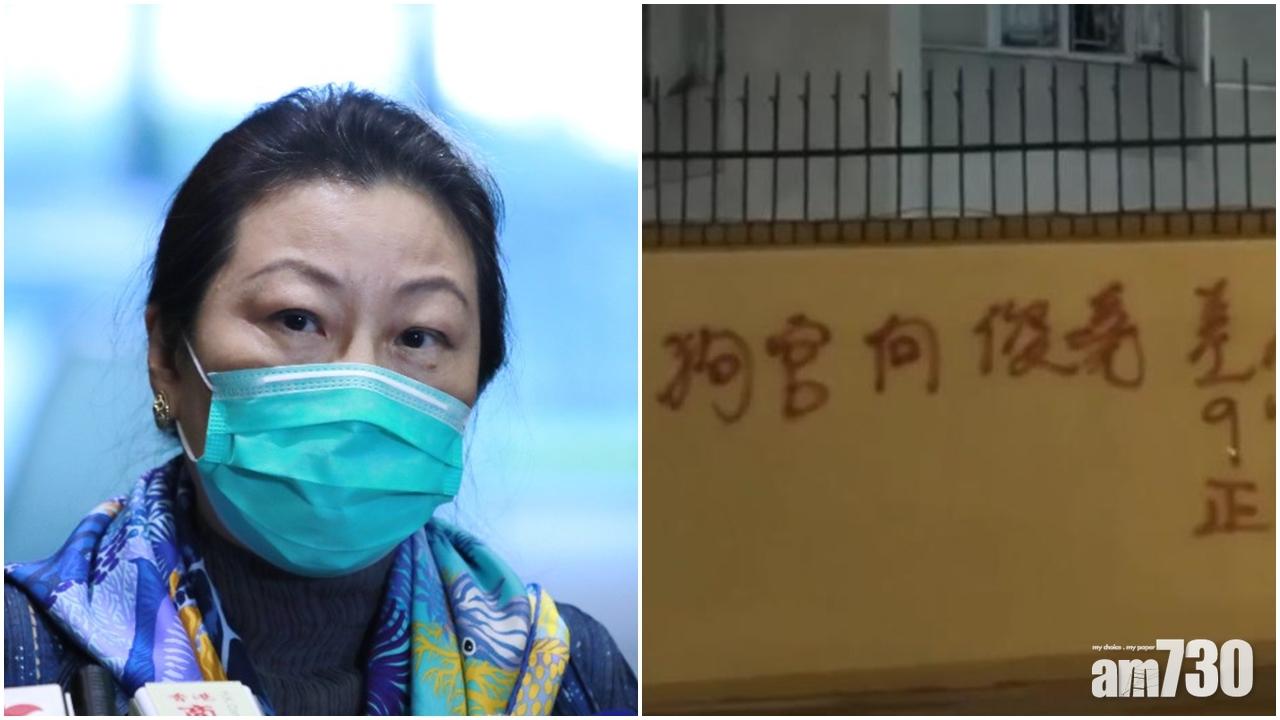 狗官向俊堯 差
9
正
香港
商
my choice . my paper
am730